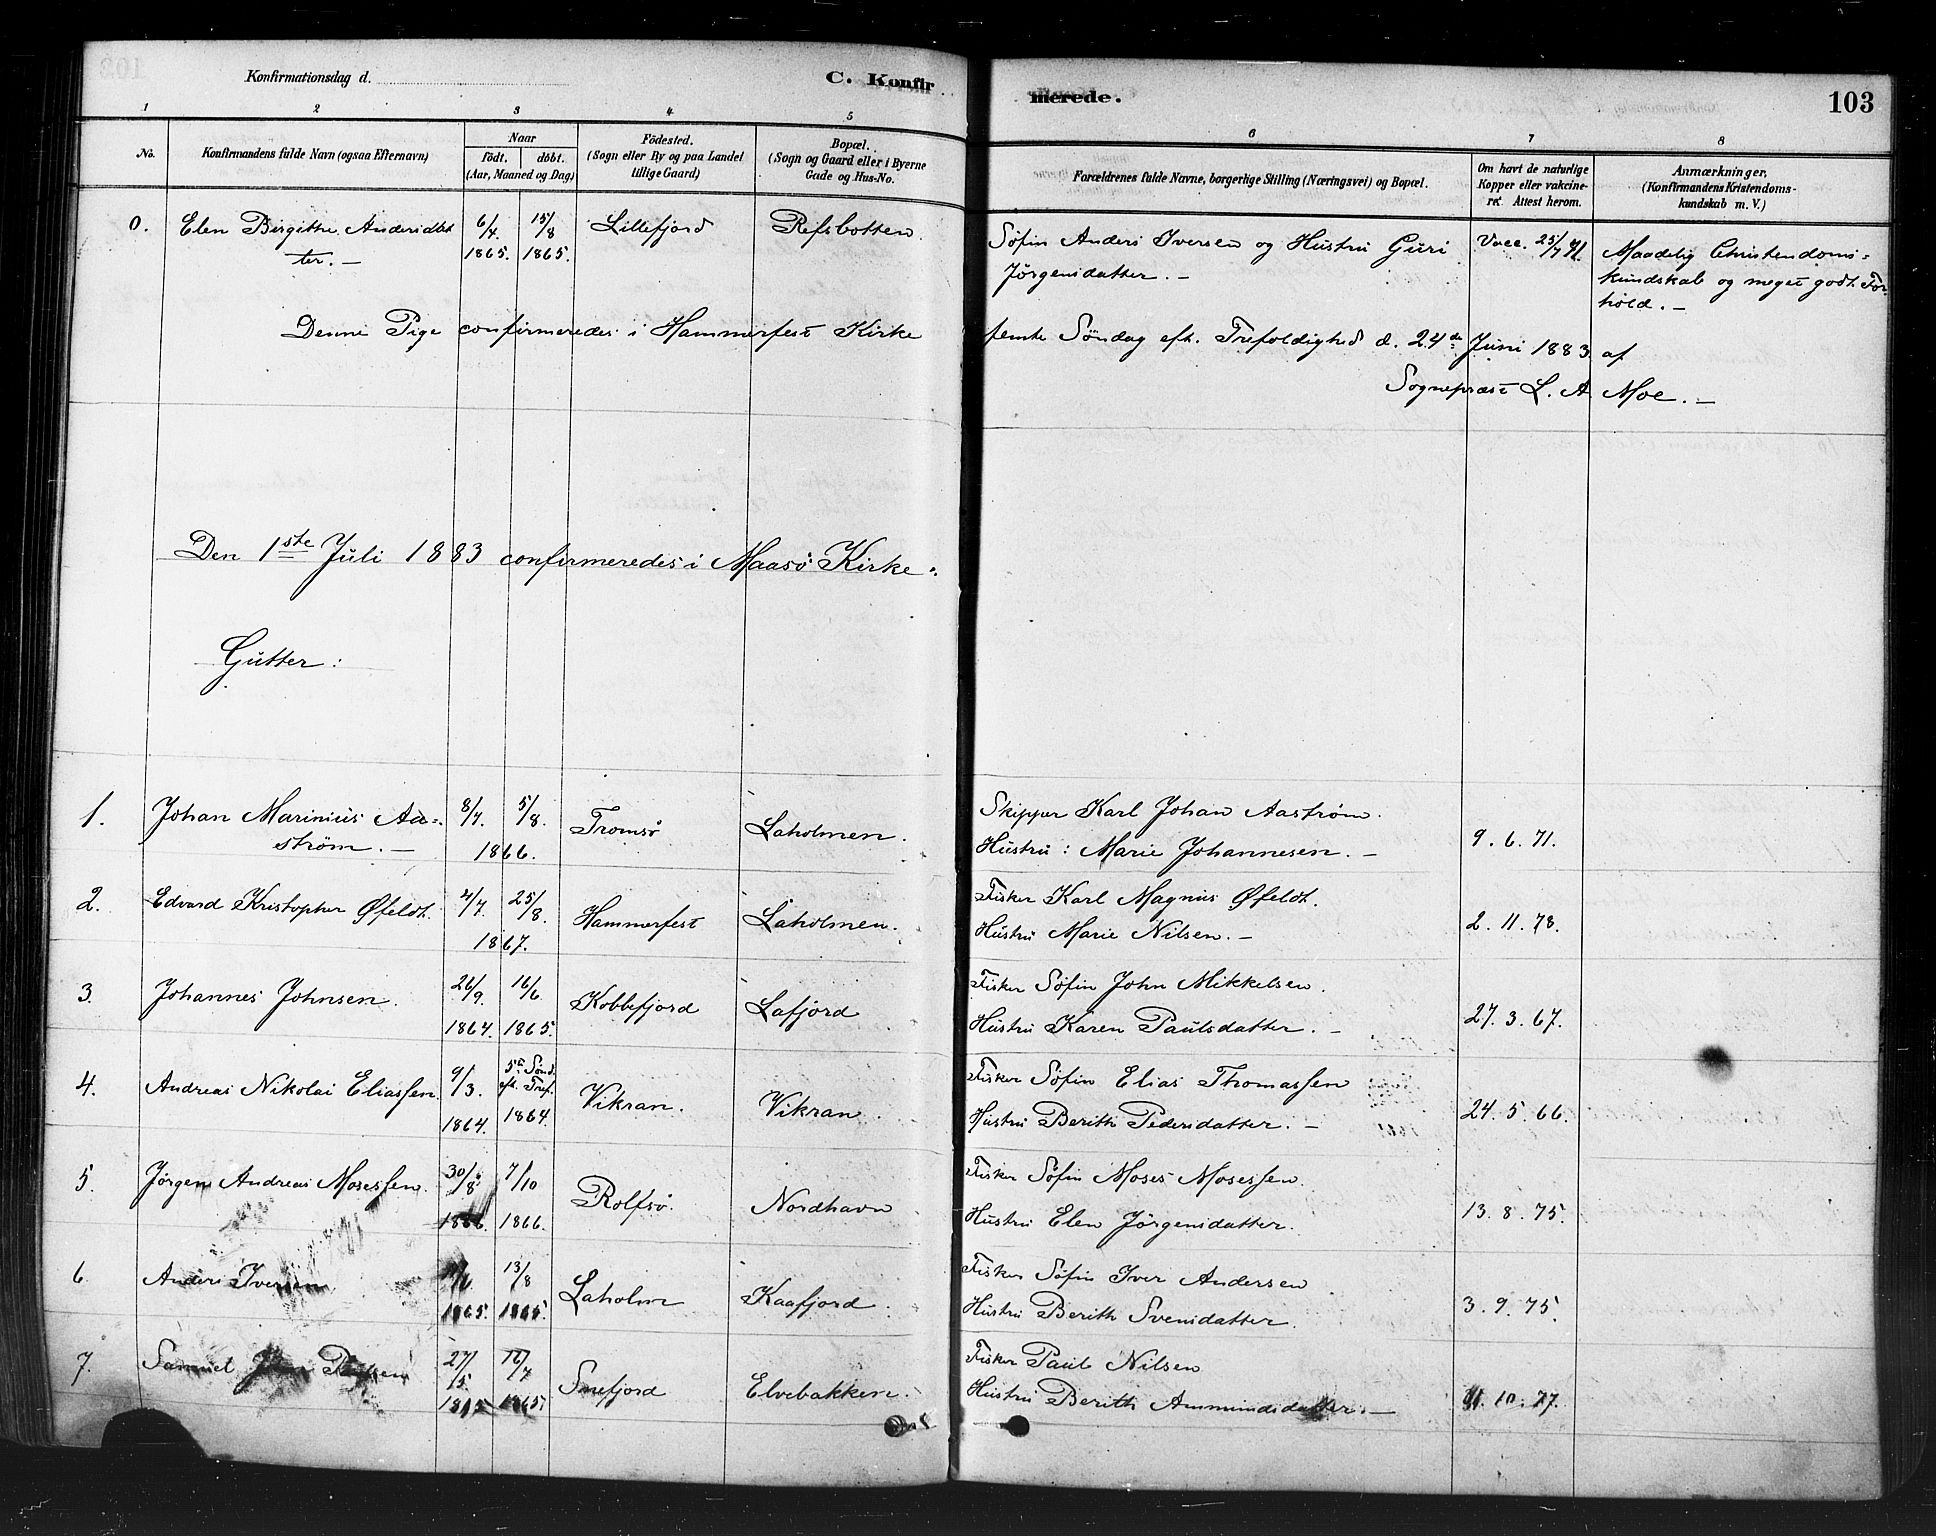 Konfirmationsdag d.
C. Konfirmerede.
103
1 2 3 4 5 6 7 8
No.
Konfirmandens fulde Navn (ogsaa Efternavn)
Naar
født. døbt.
(Aar, Maaned og Dag)
Fødested.
(Sogn eller By og paa Landet
tillige Gaard)
Bopæl.
(Sogn og Gaard eller i Byerne
Gade og Hus-No.
Forældrenes fulde Navne, borgerlige Stilling (Næringsvei) og Bopæl.
Om havt de naturlige
Kopper eller vakcine-
ret. Attest herom.
Anmærkninger,
(Konfirmandens Kristendoms-
kundskab m. V.)
0. Elen Birgithe Andersdat 6/4 15/8 Lillefjord Refsbotten. Søfin Anders Iversen og Hustru Guri Vacc. 25/7 71. Maadelig Christendoms=
ter. — 1865. 1865. Jørgensdatter. — kundskab og meget godt For
hold. —
Denne Pige confirmeredes i Hammerfest Kirke femte Søndag eft. Trefoldighed d. 24de Juni 1883 af
Sognepræst L. A Moe. —
Den 1ste Juli 1883 confirmeredes i Maasø Kirke:
Gutter:
1. Johan Marinius Aa= 8/7. 5/8. Tromsø Laholmen. Skipper Karl Johan Aastrøm.
strøm. — 1866. Hustru: Marie Johannesen. — 9. 6. 71.
2. Edvard Kristopher Øfeldt. 4/7. 25/8. Hammerfest Laholmen. Fisker Karl Magnus Øfeldt.
1867. Hustru Marie Nilsen. — 2. 11. 78.
3. Johannes Johnsen. 26/9. 16/6. Kobbefjord Lafjord Fisker Søfin John Mikkelsen.
1864. 1865. Hustru Karen Paulsdatter. — 27. 3. 67.
4. Andreas Nikolai Eliassen. 9/3. 5te Sønd. eft. Tref. Vikran. Vikran. Fisker Søfin Elias Thomassen
1864. 1864. Hustru Berith Pedersdatter. — 24. 5. 66.
5. Jørgen Andreas Mosessen. 30/8 7/10 Rolfsø. Nordhavn Fisker Søfin Moses Mosessen.
1866. 1866. Hustru Elen Jørgensdatter. 13. 8. 75.
6 Anders Iversen 13/8 Laholm Kaafjord. Fisker Søfin Iver Andersen
1865. 1865. Hustru Berith Svensdatter. 3. 9. 75.
7. Samuel 27/5 16/7 Smefjord Elvebakken. Fisker Paul Nilsen
1865 1865 Hustru Berith Ammundsdatter. — 10. 77.